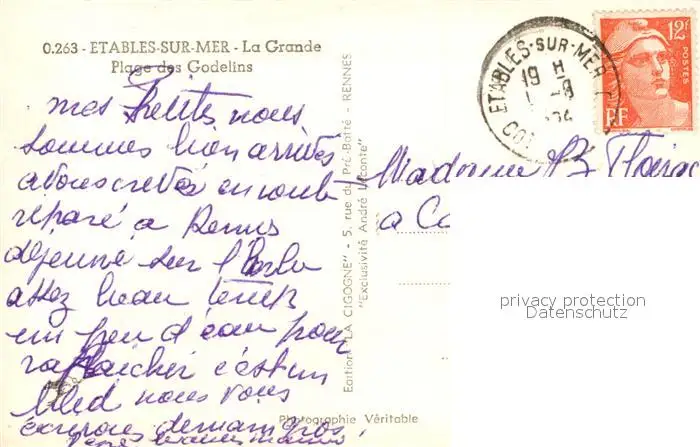 0.263 - ETABLES-SUR-MER - La Grande
Plage des Godelins
mes Petites nous
sommes bien arrivés
avons crevés en route
réparé a Rennes
déjeuné sur l'herbe
assez beau temps
un peu d'eau pour
rafraichir c'est un
bled nous vous
écrirons demain gros
Edition "LA CIGOGNE" - 5, rue du Pré-Botté - RENNES
"Exclusivité André Laconte"
Photographie Véritable
ETABLES-SUR-MER
19 H
12F
POSTES
RF
Madame
a
privacy protection
Datenschutz